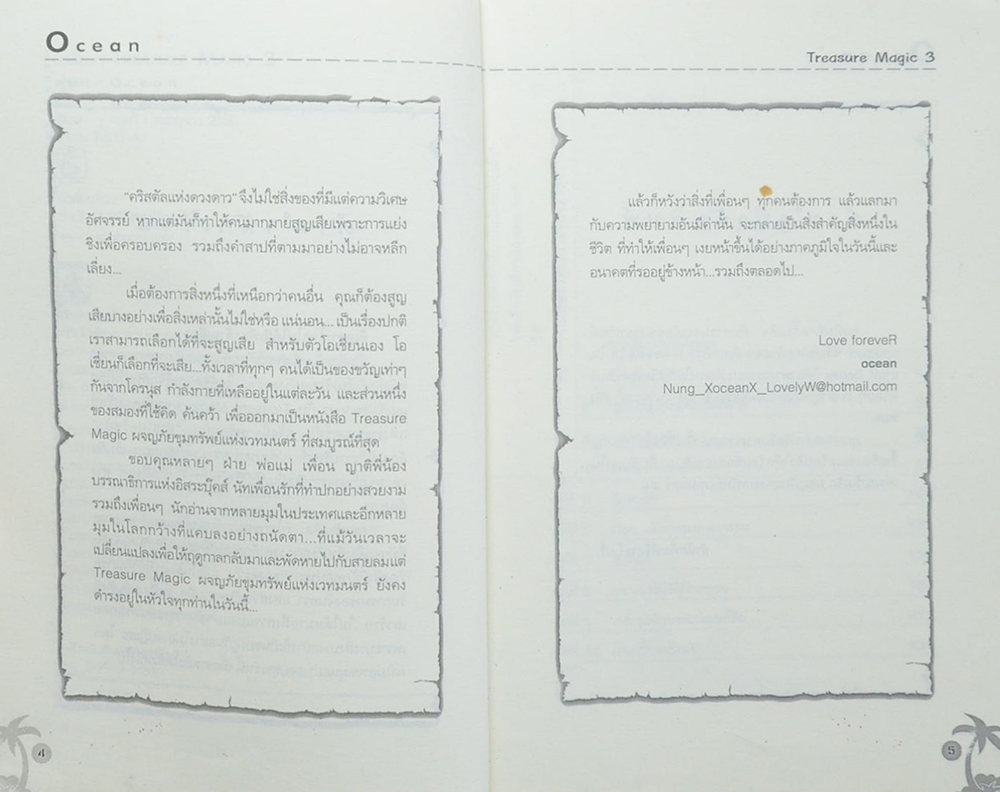 Ocean
"คริสตัลแห่งดวงดาว" จึงไม่ใช่สิ่งของที่มีแต่ความวิเศษ
อัศจรรย์ หากแต่มันก็ทำให้คนมากมายสูญเสียเพราะการแย่ง
ชิงเพื่อครอบครอง รวมถึงคำสาปที่ตามมาอย่างไม่อาจหลีก
เลี่ยง...
เมื่อต้องการสิ่งหนึ่งที่เหนือกว่าคนอื่น คุณก็ต้องสูญ
เสียบางอย่างเพื่อสิ่งเหล่านั้นไม่ใช่หรือ แน่นอน... เป็นเรื่องปกติ
เราสามารถเลือกได้ที่จะสูญเสีย สำหรับตัวโอเชี่ยนเอง โอ
เชี่ยนก็เลือกที่จะเสีย...ทั้งเวลาที่ทุกๆ คนได้เป็นของขวัญเท่าๆ
กันจากโครนุส กำลังกายที่เหลืออยู่ในแต่ละวัน และส่วนหนึ่ง
ของสมองที่ใช้คิด ค้นคว้า เพื่อออกมาเป็นหนังสือ Treasure
Magic ผจญภัยขุมทรัพย์แห่งเวทมนตร์ ที่สมบูรณ์ที่สุด
ขอบคุณหลายๆ ฝ่าย พ่อแม่ เพื่อน ญาติพี่น้อง
บรรณาธิการแห่งอิสระบุ๊คส์ นัทเพื่อนรักที่ทำปกอย่างสวยงาม
รวมถึงเพื่อนๆ นักอ่านจากหลายมุมในประเทศและอีกหลาย
มุมในโลกกว้างที่แคบลงอย่างถนัดตา...ที่แม้วันเวลาจะ
เปลี่ยนแปลงเพื่อให้ฤดูกาลกลับมาและพัดหายไปกับสายลม แต่
Treasure Magic ผจญภัยขุมทรัพย์แห่งเวทมนตร์ ยังคง
ดำรงอยู่ในหัวใจทุกท่านในวันนี้...
4
Treasure Magic 3
แล้วก็หวังว่าสิ่งที่เพื่อนๆ ทุกคนต้องการ แล้วแลกมา
กับความพยายามอันมีค่านั้น จะกลายเป็นสิ่งสำคัญสิ่งหนึ่งใน
ชีวิต ที่ทำให้เพื่อนๆ เงยหน้าขึ้นได้อย่างภาคภูมิใจในวันนี้และ
อนาคตที่รออยู่ข้างหน้า...รวมถึงตลอดไป...
Love foreveR
ocean
Nung_XoceanX_LovelyW@hotmail.com
5